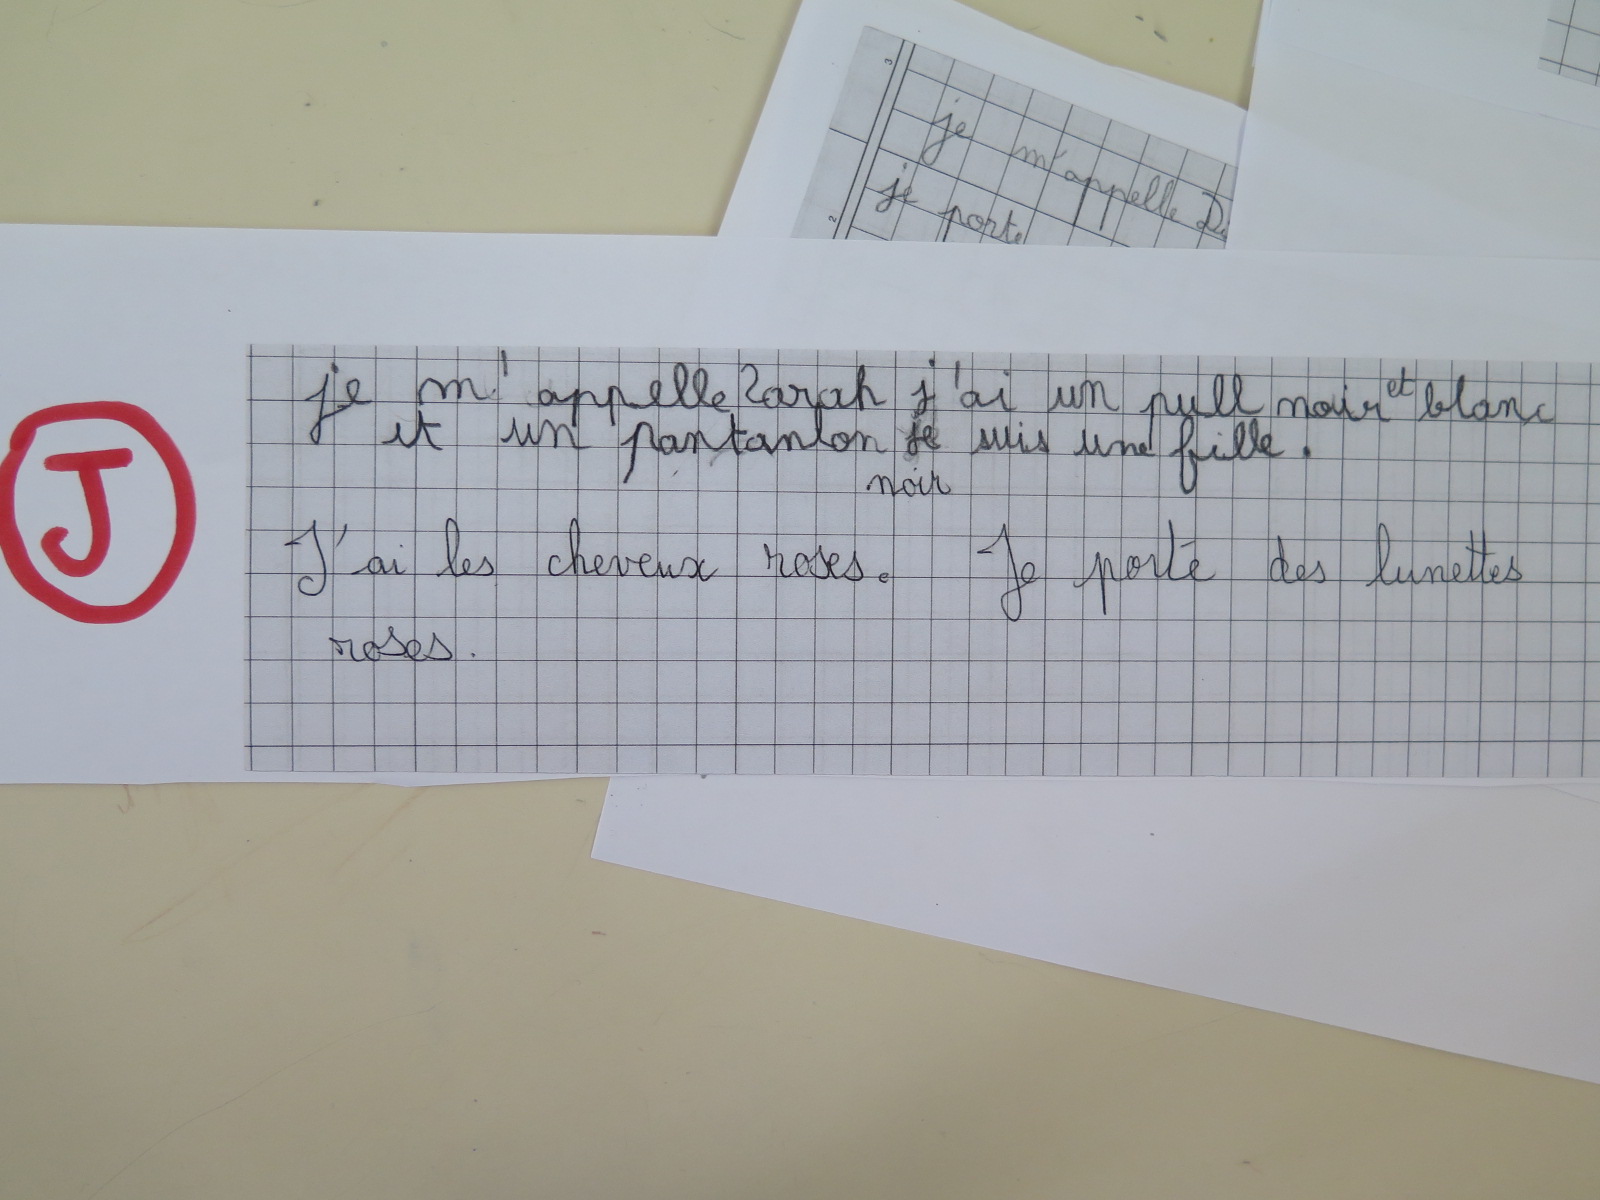 3
je m'appelle D
2
je porte
J
je m'appelle Sarah j'ai un pull noir et blanc
et un pantanlon je suis une fille.
noir
J'ai les cheveux roses. Je porte des lunettes
roses.